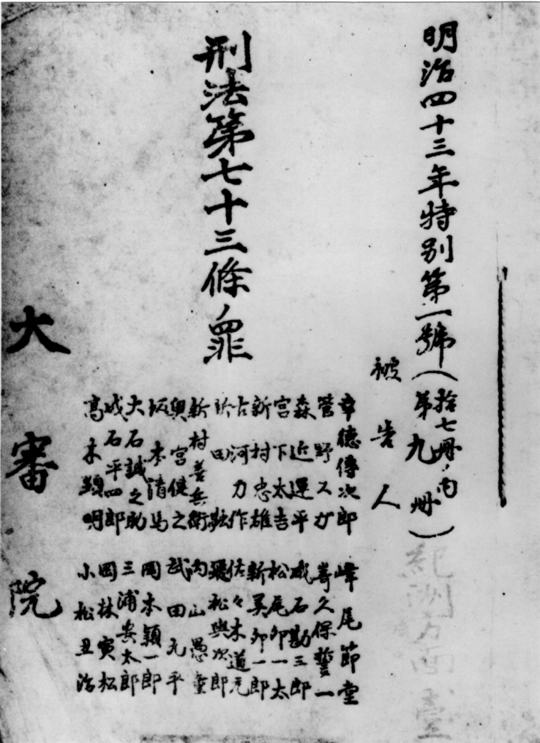 明治四十三年特別第一號(拾七冊ノ内
第九冊)
紀洲方面
刑法第七十三條ノ罪
被告人
幸徳傳次郎
管野スガ
森近運平
宮下太吉
新村忠雄
古河力作
田融
新村善兵衛
奥宮健之
坂本清馬
大石誠之助
成石平四郎
高木顕明
峰尾節堂
崎久保誓一
成石勘三郎
松尾卯一太
新美卯一郎
佐々木道元
飛松與次郎
内山愚童
武田九平
岡本穎一郎
三浦安太郎
岡林寅松
小松丑治
大審院